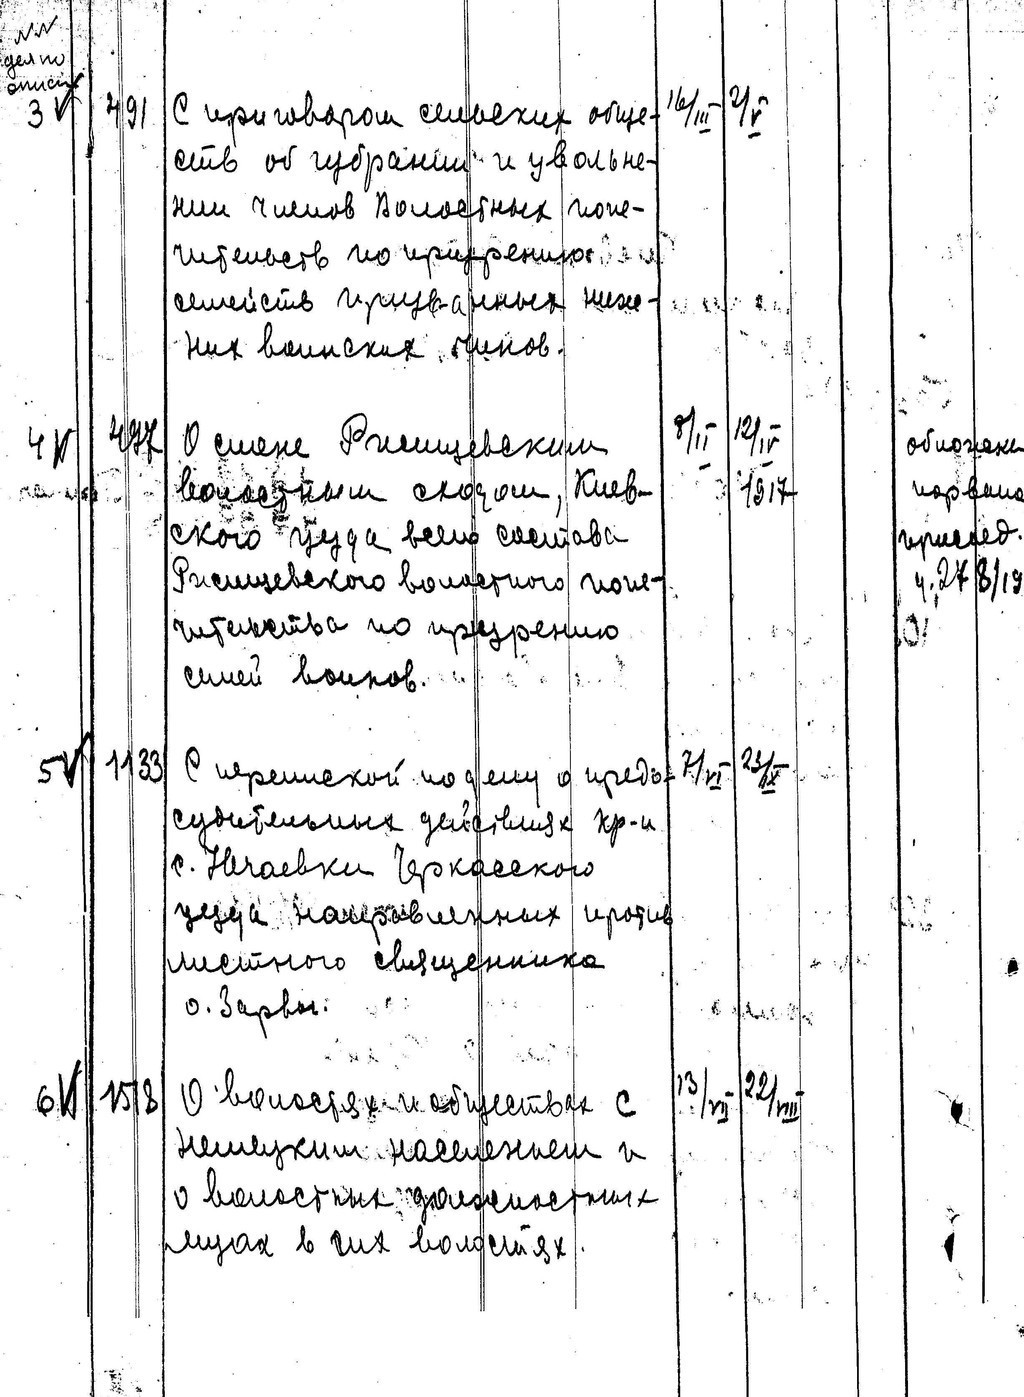 NN
дел по
описи
3 V 491 С приговором сельских обще- 16/III 2/V
ств об избрании и увольне-
нии членов Волостных попе-
чительств по призрению
семейств призванных ниж-
них воинских чинов.
4 V 497 О смене Ржищевским 8/II 12/IV
волостным сходом, Киев- 1917
ского уезда всего состава
Ржищевского волостного попе-
чительства по призрению
семей воинов.
порвана
5 V 1133 С перепиской по делу о предо- 7/VI 23/IX
судительных действиях кр-н
с. Нечаевки Черкасского
уезда направленных против
местного священника
о. Зарвы.
6 V 1518 О волостях и обществах с 13/VII 22/VIII
немецким населением и
о волостных должностных
лицах в сих волостях.